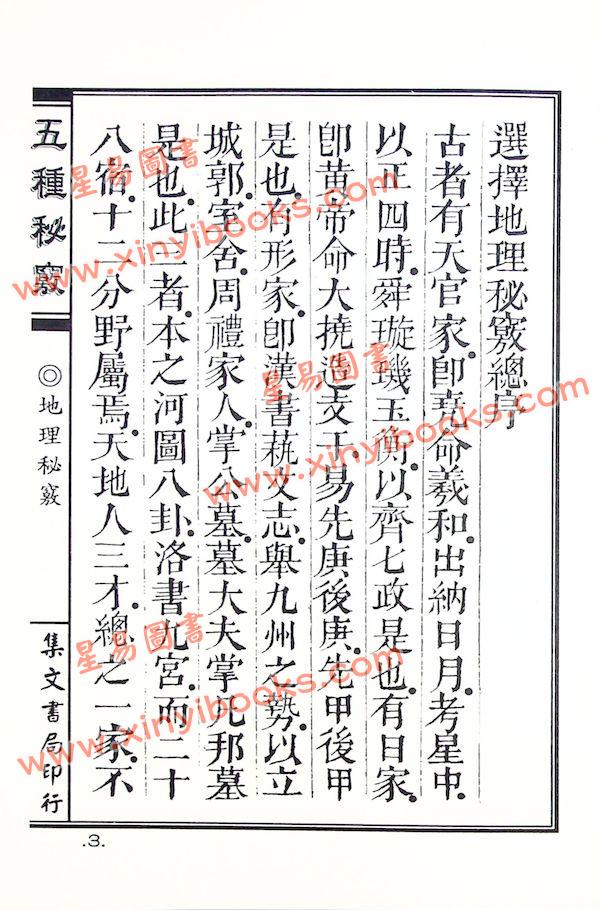 選擇地理秘竅總序
古者有天官家即堯命羲和出納日月考星中
以正四時舜璇璣玉衡以齊七政是也有日家
即黃帝命大撓造支干易先庚後庚先甲後甲
是也有形家即漢書藝文志舉九州之勢以立
城郭室舍周禮家人掌公墓墓大夫掌凡邦墓
是也此二者本之河圖八卦洛書九宮而二十
八宿十二分野屬焉天地人三才總之一家不
五種秘竅
◎地理秘竅
集文書局印行
.3.
星易圖書
www.xinyibooks.com
星易圖書
www.xinyibooks.com
星易圖書
www.xinyibooks.com